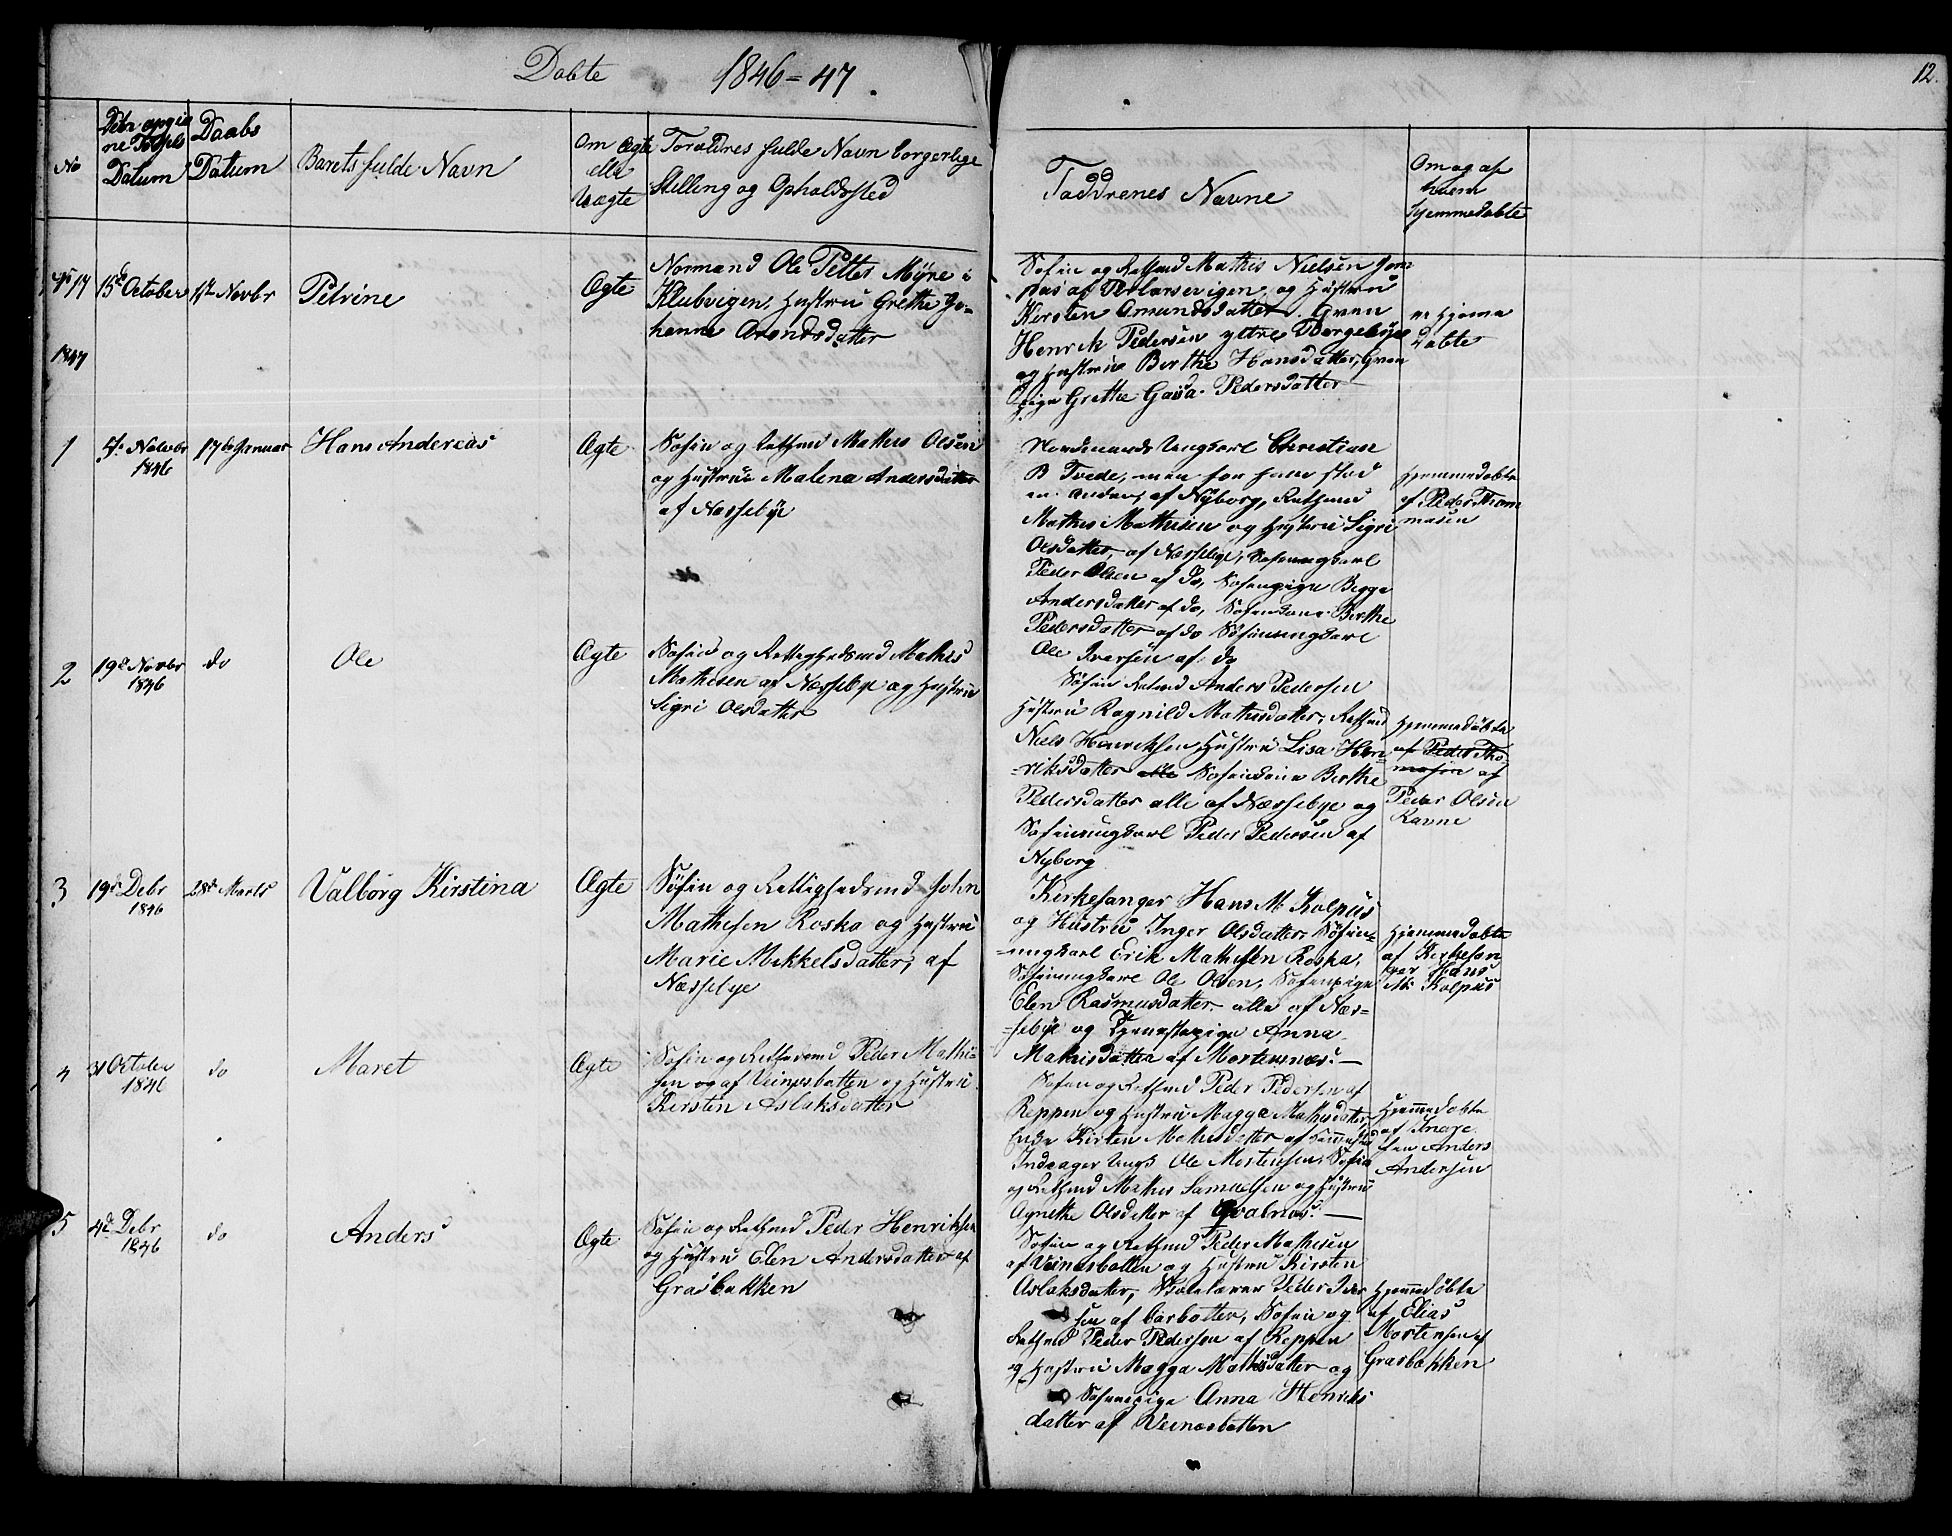 Døbte 1846-47.
12.
No
Datum
Daabs
Datum
Barets fulde Navn
Om Ægte
eller
Uægte
Foræeldres fulde Navn borgerlige
Stilling og Opholdssted
Faddrenes Navne
Om og af
hvem
hjemmedøbte
17
15de October
1ste Novbr
Petrine
Ægte
Normand Ole Petter Myre i
Klubvigen, Hustru Grethe Jo-
hanna Arondsdatter
Søfin og Retsmd Mathis Nielsen
og Hustru
Kirsten Amundsdatter.
Henrik Pedersen yttre
og Hustru Berthe Hansdatter,
pige Grethe Pedersdatter
ei hjemme
døbte
1847
1
Novbr
1846
17de Januar
Hans Andereas
Ægte
Søfin og Retsmd Mathis Olsen
og Hustru Malena Andersdatter
af Næssebye
Nordmands Ungkarl Christian
B Tvede, men for ham stod
en anden, af Nyborg, Retsmd
Mathis Mathisen og Hustru Sigri
Olsdatter, af Næssebye, Søfinungkarl
Peder Olsen af do, Søfinpige Begga
Andersdatter af do, Søfinkone Berthe
Pedersdatter af do Søfinungkarl
Ole Iversen af do
Hjemmedøbte
af Peder Thom
masen
2
19de Novbr
1846
do
Ole
Ægte
Søfin og Rettighedsmd Mathis
Mathisen af Næssebye og Hustru
Sigri Olsdatter
Søfin Retsmd Anders Pedersen
Hustru Ragnild Mathisdatter, Retsmd
Niels Henriksen, Hustru Lisa Hen-
-riksdatter alle Søfinkone Berthe
Pedersdatter alle af Næssebye og
Søfinungkarl Peder Pedersen af
Nyborg
Hjemmedøbte
af Peder Tho-
masen af
Peder Olsen
Ravne
3
19de Debr
1846
28de Marts
Valborg Kirstina
Ægte
Søfin og Rettighedsmd John
Mathisen Roska og Hustru
Marie Mikkelsdatter, af
Næssebye
Kirkesanger Hans M. Kolpus
og Hustru Inger Olsdatter, Søfin-
-ungkarl Erik Mathisen Roska,
Søfinungkarl Ole Olsen, Søfinpige
Elen Rasmusdatter alle af Næs-
-sebye og Tjenestepige Anna
Mathisdatter af Mortensnæs.
Hjemmedøbte
af Kirkesan
ger Hans
M. Kolpus
4
31 October
1846
do
Maret
Ægte
Søfin og Retsmd Peder Mathi-
sen og af Veinesbotten og Hustru
Kirsten Aslaksdatter
Søfin og Retsmd Peder Pedersen af
Reppen og Hustru Magga Mathisdatter,
Kirsten Mathisdatter af
Ole Mortensen, Søfin
og Retsmd Mathis Samuelsen og Hustru
Agnethe Olsdatter af Qvalnæs.
Hjemmedøbte
af
Anders
Andersen
5
4de Debr
1846
do
Anders
Ægte
Søfin og Retsmd Peder Henriksen
og Hustru Elen Andersdatter af
Græsbakken
Søfin og Retsmd Peder Mathisen
af Veinesbotten og Hustru Kirsten
Aslaksdatter, Skolelærer Peder Peder
sen af Carbotten, Søfin og
Retsmd Peder Pedersen af Reppen
og Hustru Magga Mathisdatter og
Søfinpige Anna Henriks
datter af Veinesbotten
Hjemmedøbte
af Elias
Mortensen af
Græsbakken